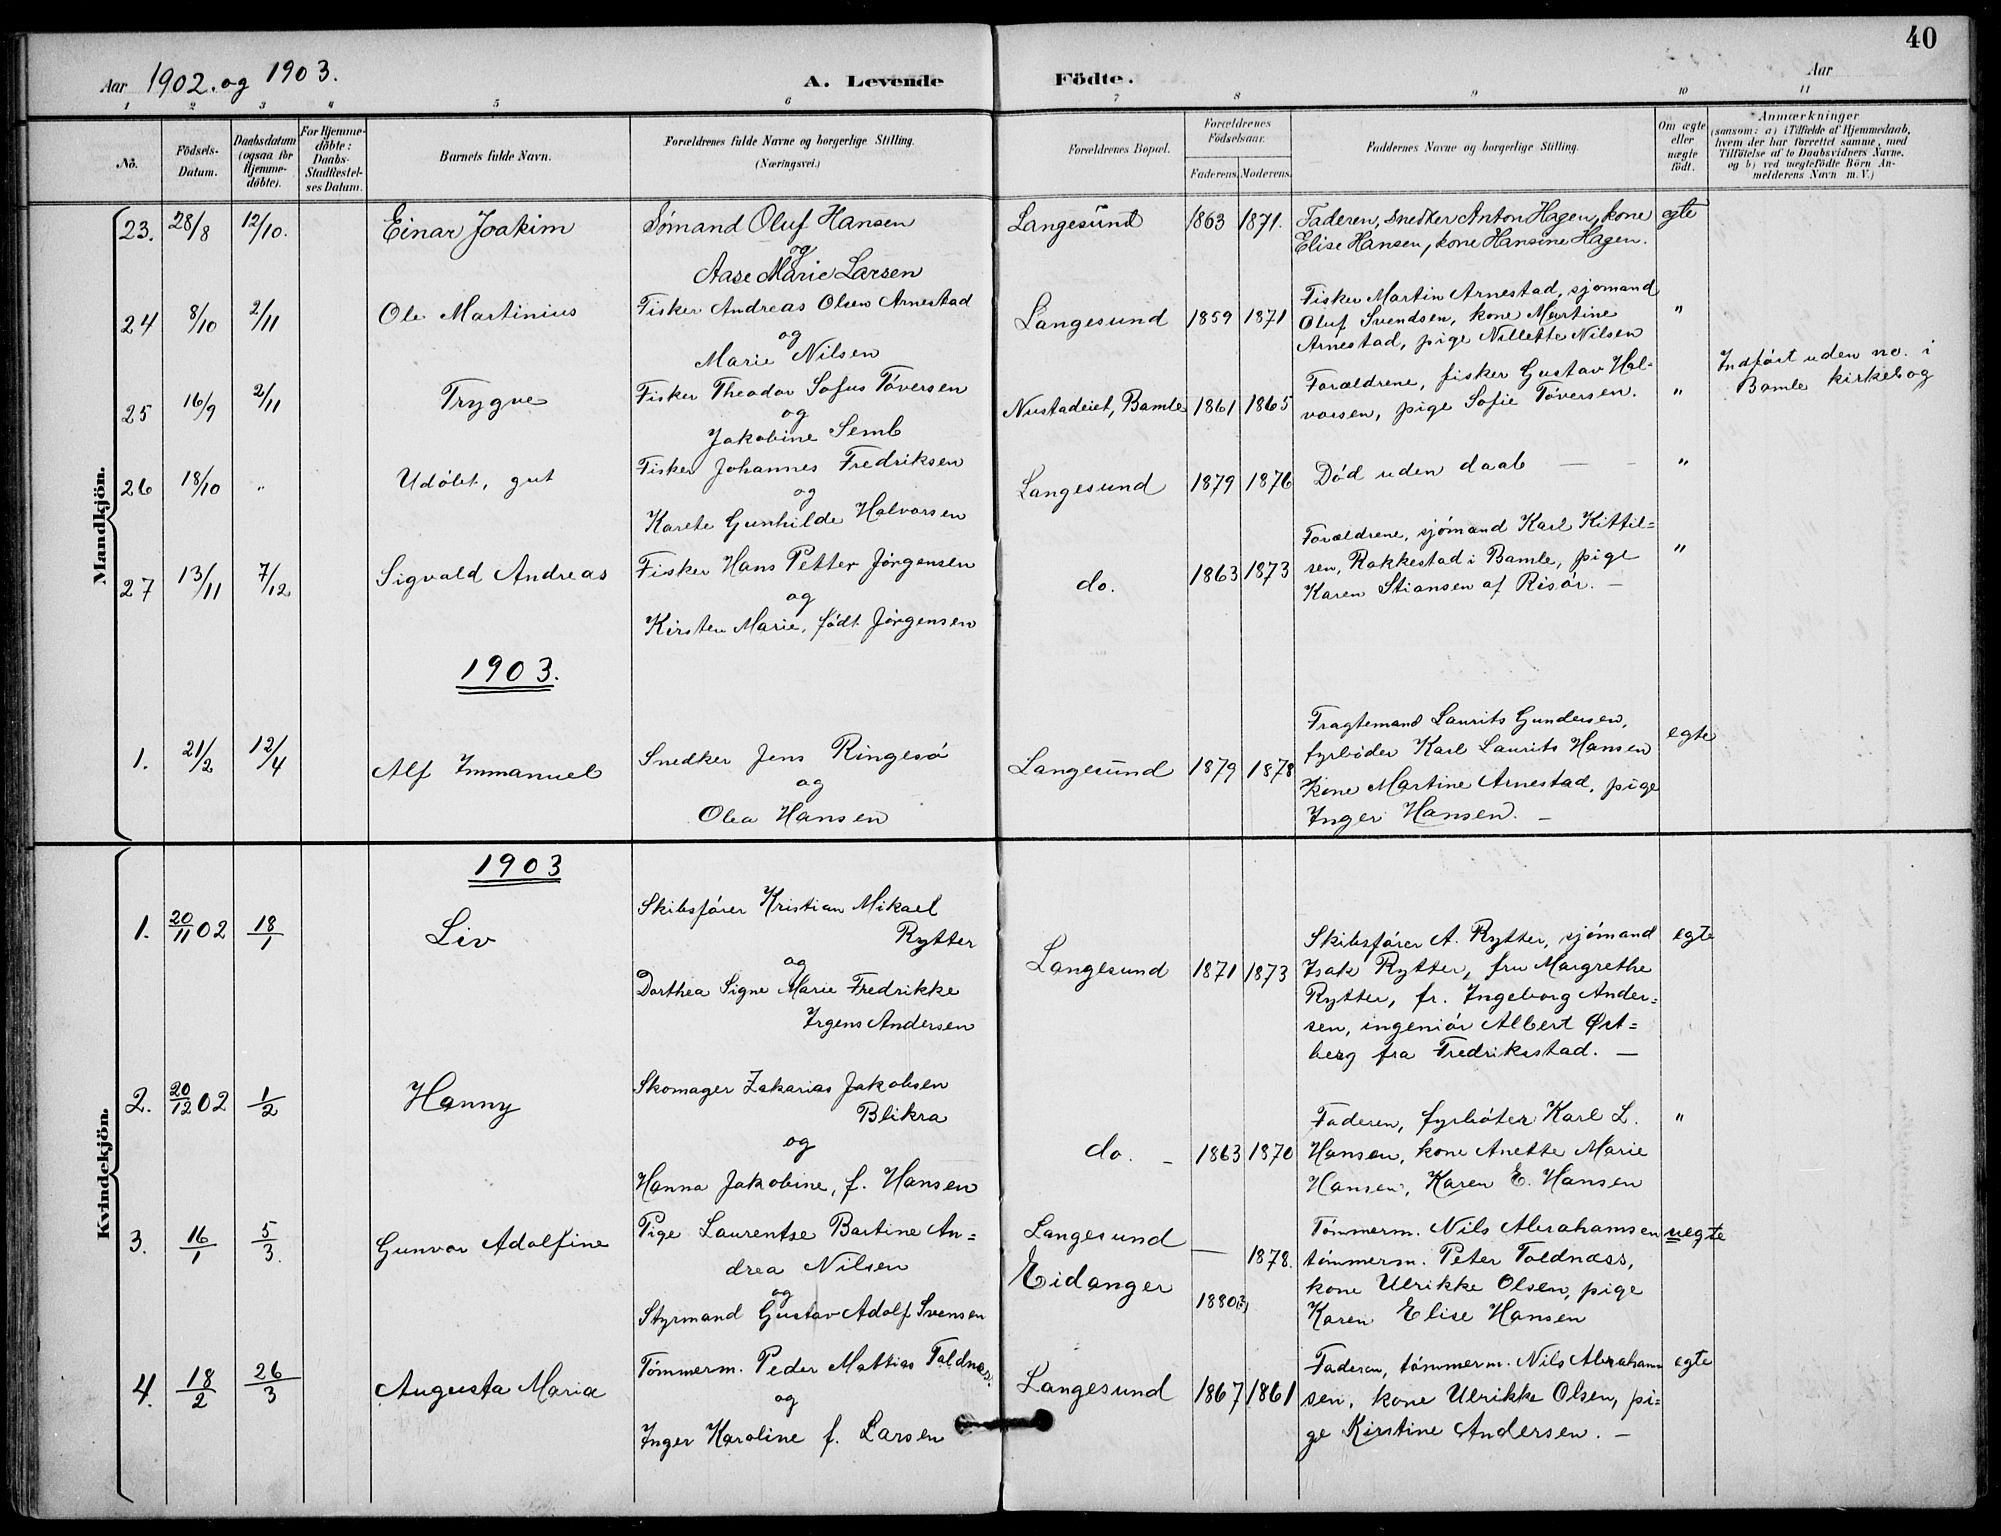 40
Aar 1902. og 1903.
A. Levende Födte.
Aar
1 2 3 4 5 6 7 8 9 10 11
No.
Födsels-Datum.
Daabsdatum (ogsaa for Hjemme-döbte).
For Hjemme-döbte: Daabs-Stadfæstel-ses Datum.
Barnets fulde Navn.
Forældrenes fulde Navne og borgerlige Stilling.
(Næringsvei.)
Forældrenes Bopæl.
Forældrenes Födselsaar.
Faderens. Moderens.
Faddernes Navne og borgerlige Stilling.
Om ægte eller uægte födt.
Anmærkninger
(saasom: a) i Tilfælde af Hjemmedaab,
hvem der har forrettet samme, med
Tilföielse af to Daabsvidners Navne,
og b) ved uægtefödte Börn An-
melderens Navn m. V.)
Mandkjön.
23. 28/8 12/10. Einar Joakim
Sømand Oluf Hansen
og
Aase Marie Larsen
Langesund 1863 1871.
Faderen, Snedker Anton Hagen, kone
Elise Hansen, kone Hansine Hagen.
egte
24 8/10 2/11 Ole Martinius
Fisker Andreas Olsen Arnestad
og
Marie Nilsen
Langesund 1859 1871
Fisker Martin Arnestad, sjømand
Oluf Svendsen, kone Martine
Arnestad, pige Nillette Nilsen
"
25 16/9 2/11 Trygve
Fisker Theodor Sofus Tóversen
og
Jakobine Semb
Nustadeiet, Bamle 1861 1865
Forældrene, fisker Gustav Hal-
vorsen, pige Sofie Tóversen.
"
Indført uden no. i
Bamle kirkebog
26 18/10 " Udóbt, gut
Fisker Johannes Fredriksen
og
Karete Gunhilde Halvorsen
Langesund 1879 1876
Dód uden daab — -
"
27 13/11 7/12 Sigvald Andreas
Fisker Hans Petter Jórgensen
og
Kirsten Marie, fódt Jórgensen
do. 1863 1873
Forældrene, sjómand Karl Kittil=
sen, Rakkestad i Bamle, pige
Karen Stiansen af Risór. —
"
1903.
1. 21/2 12/4 Alf Immanuel
Snedker Jens Ringesó
og
Olea Hansen
Langesund 1879 1878
Fragtemand Laurits Gundersen,
fyrbóder Karl Laurits Hansen
Kone Martine Arnestad, pige
Inger Hansen. —
egte
Kvindekjön.
1903
1. 20/11 02 18/1 Liv
Skibsfórer Kristian Mikael
Rytter
og
Dorthea Signe Marie Fredrikke
Irgens Andersen
Langesund 1871 1873
Skibsfórer A. Rytter, sjómand
Isak Rytter, fru Margrethe
Rytter, fr. Ingeborg Ander=
sen, ingeniór Albert Øst=
berg fra Fredriksstad. —
egte
2. 20/12 02 1/2 Hanny
Skomager Zakarias Jakobsen
Blikra
og
Hanna Jakobine, f. Hansen
do. - 1863 1870
Faderen, fyrbóter Karl L.
Hansen, kone Anette Marie
Hansen, Karen E. Hansen
"
3. 16/1 5/3. Gunvor Adolfine
Pige Laurentse Bartine An=
drea Nilsen
og
Styrmand Gustav Adolf Svensen
Langesund — 1878.
Eidanger 1880
Tømmerm. Nils Abrahamsen
tómmerm. Peter Toldnæss,
kone Ulrikke Olsen, pige
Karen Elise Hansen
uegte
4. 18/2 26/3 Augusta Maria
Tómmerm. Peder Mattias Toldnæs.
og
Inger Karoline f. Larsen
Langesund 1867 1861
Faderen, tómmerm. Nils Abraham
sen, kone Ulrikke Olsen, pi=
ge Kirstine Andersen. —
egte